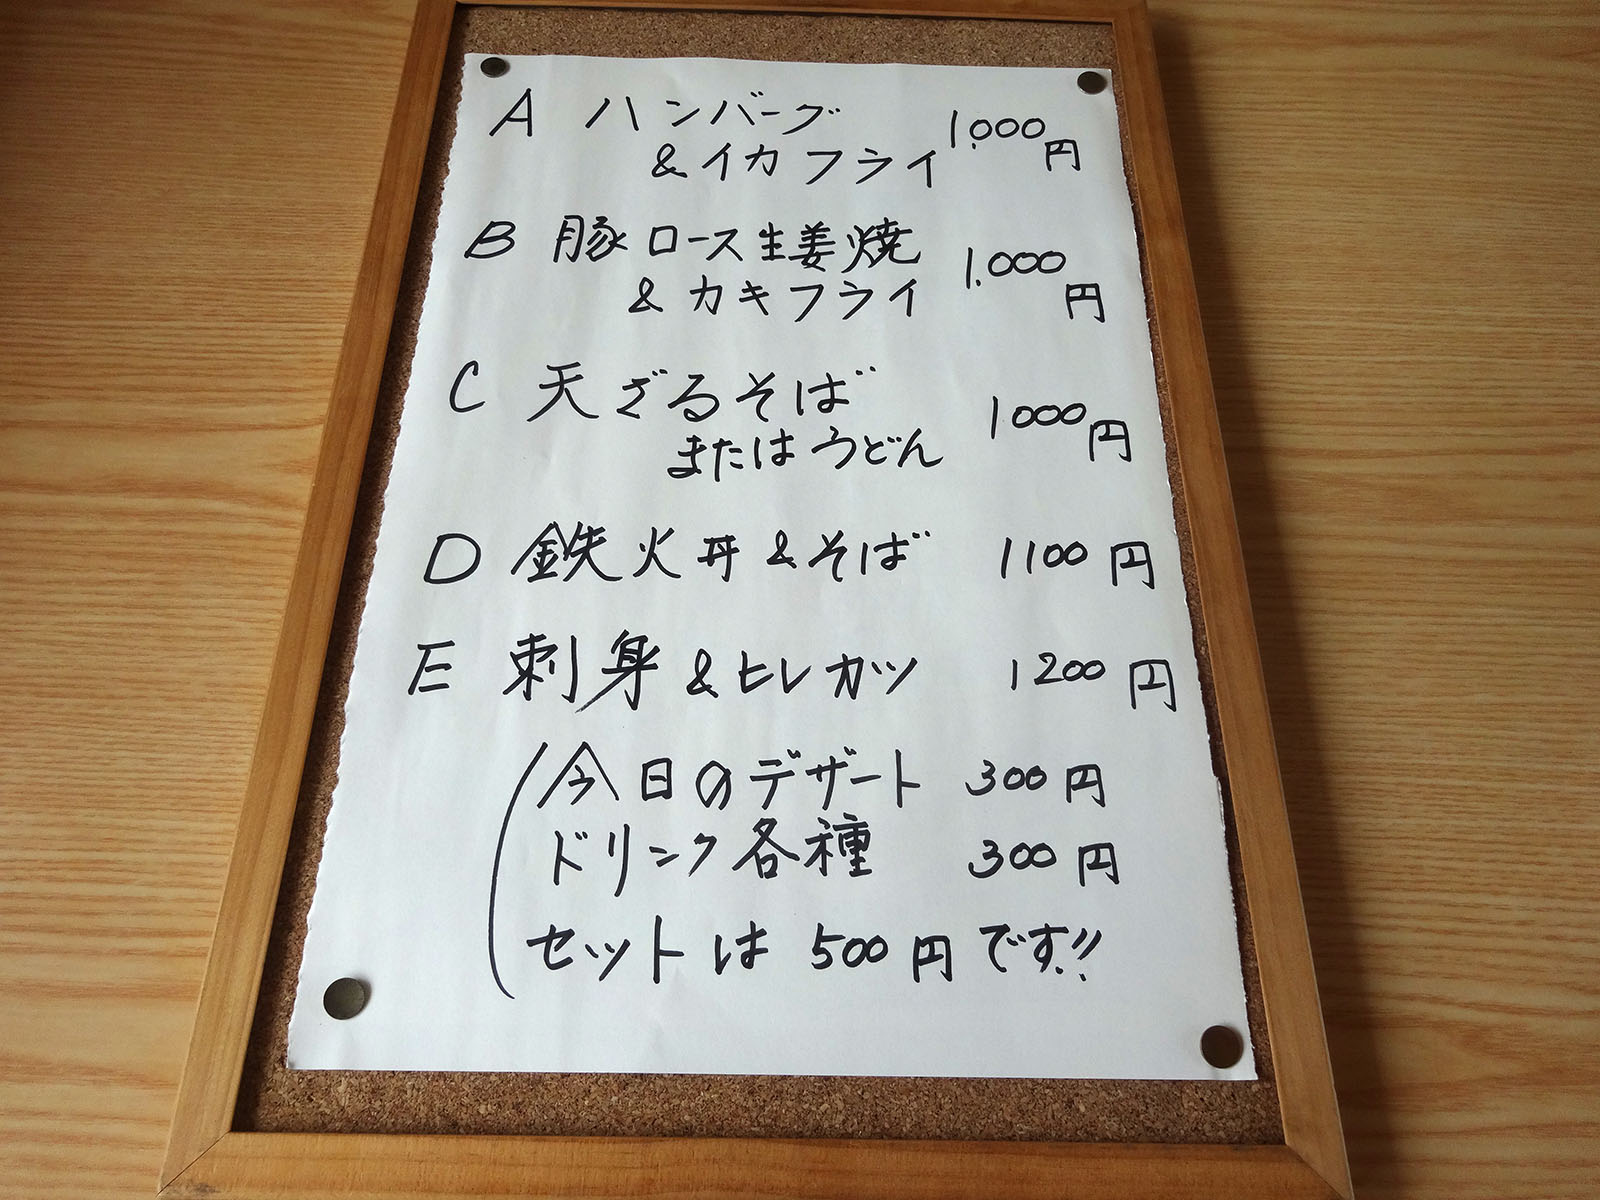 A ハンバーグ 1.000円
&イカフライ
B 豚ロース生姜焼 1.000円
&カキフライ
C 天ざるそば 1000円
またはうどん
D 鉄火丼&そば 1100円
E 刺身&ヒレカツ 1200円
(今日のデザート 300円
ドリンク各種 300円
セットは500円です!!